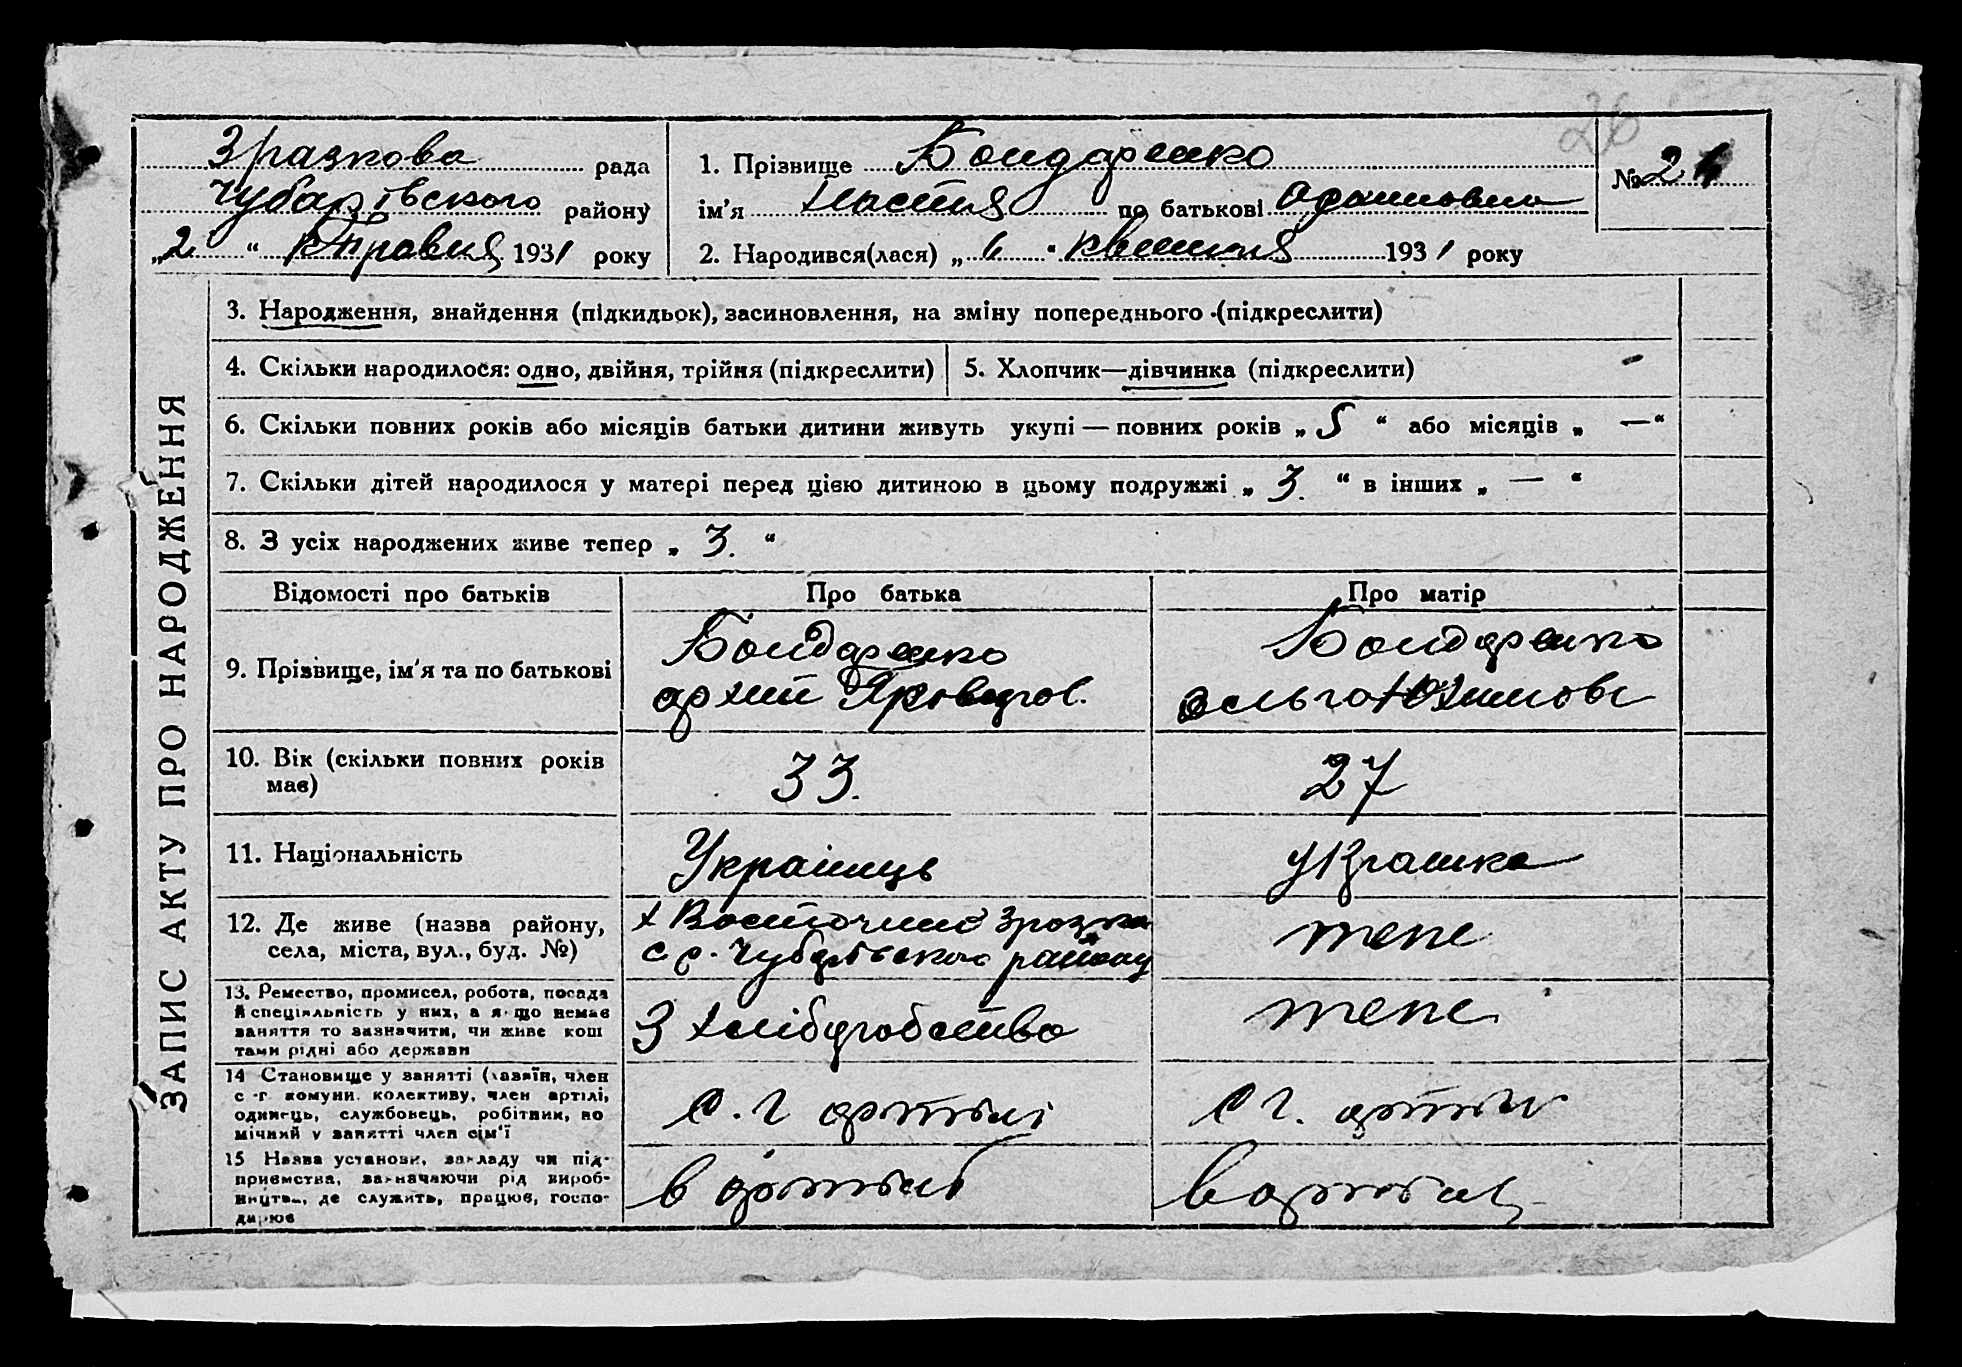 26
Зразкова рада
Чубарівського району
„2“ Травня 1931 року
1. Прізвище Бондаренко
ім'я Настя по батькові
2. Народився(лася) „6“ квітня 1931 року
№ 2
ЗАПИС АКТУ ПРО НАРОДЖЕННЯ
3. Народження, знайдення (підкидьок), засиновлення, на зміну попереднього (підкреслити)
4. Скільки народилося: одно, двійня, трійня (підкреслити)
5. Хлопчик—дівчинка (підкреслити)
6. Скільки повних років або місяців батьки дитини живуть укупі — повних років „ 5 “ або місяців „ — “
7. Скільки дітей народилося у матері перед цією дитиною в цьому подружжі „ 3. “ в інших „ — “
8. З усіх народжених живе тепер „ 3. “
Відомості про батьків
Про батька
Про матір
9. Прізвище, ім'я та по батькові
Бондаренко
Бондаренко
10. Вік (скільки повних років
має)
33.
27
11. Національність
Українець
Українка
12. Де живе (назва району,
села, міста, вул., буд. №)
х Восточний Зразков
с р. Чубарівського району
теж
13. Ремество, промисел, робота, посада
й спеціяльність у них, а якщо немає
заняття то зазначити, чи живе кош
тами рідні або держави
З хліборобства
теж
14 Становище у занятті (хазяїн, член
с.-г комуни, колективу, член артілі,
одинець, службовець, робітник, по
мічний у занятті член сім'ї
с. г артілі
с г. артілі
15 Назва установи, закладу чи під-
приємства, зазначаючи рід вироб-
ництва, де служить, працює, госпо-
дарює
в артілі
в артілі